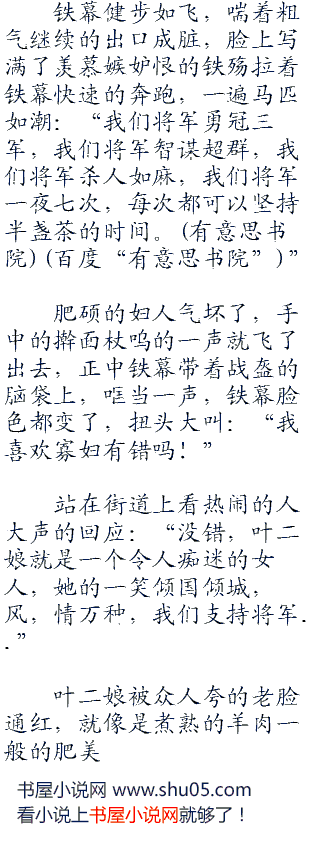 铁幕健步如飞，喘着粗
气继续的出口成脏，脸上写
满了羡慕嫉妒恨的铁殇拉着
铁幕快速的奔跑，一遍马匹
如潮：“我们将军勇冠三
军，我们将军智谋超群，我
们将军杀人如麻，我们将军
一夜七次，每次都可以坚持
半盏茶的时间。(有意思书
院)(百度“有意思书院”)”
肥硕的妇人气坏了，手
中的擀面杖呜的一声就飞了
出去，正中铁幕带着战盔的
脑袋上，哐当一声，铁幕脸
色都变了，扭头大叫：“我
喜欢寡妇有错吗！”
站在街道上看热闹的人
大声的回应：“没错，叶二
娘就是一个令人痴迷的女
人，她的一笑倾国倾城，
风，情万种，我们支持将军.
.”
叶二娘被众人夸的老脸
通红，就像是煮熟的羊肉一
般的肥美
书屋小说网 www.shu05.com
看小说上书屋小说网就够了！